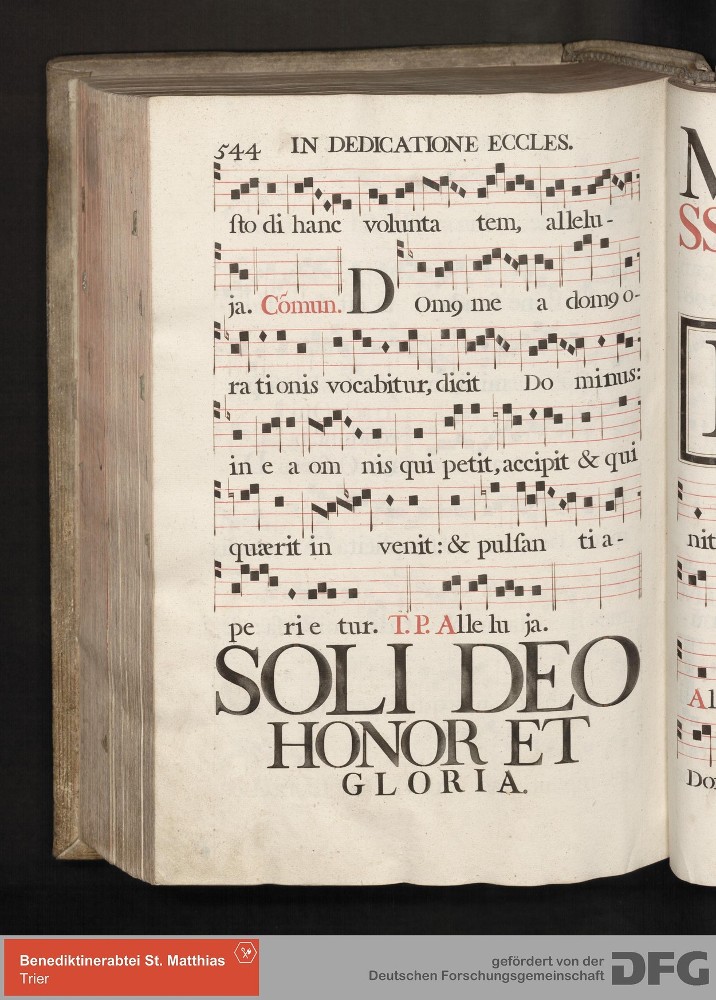 544 IN DEDICATIONE ECCLES.
ſto di hanc volunta tem, allelu-
ja. Cõmun. Domꝯ me a domꝯ o-
ra ti onis vocabitur, dicit Do minus:
in e a om nis qui petit, accipit & qui
quærit in venit: & pulſan ti a-
pe ri e tur. T. P. Alle lu ja.
SOLI DEO
HONOR ET
GLORIA.
nit
Al
Benediktinerabtei St. Matthias
Trier
gefördert von der
Deutschen Forschungsgemeinschaft
DFG